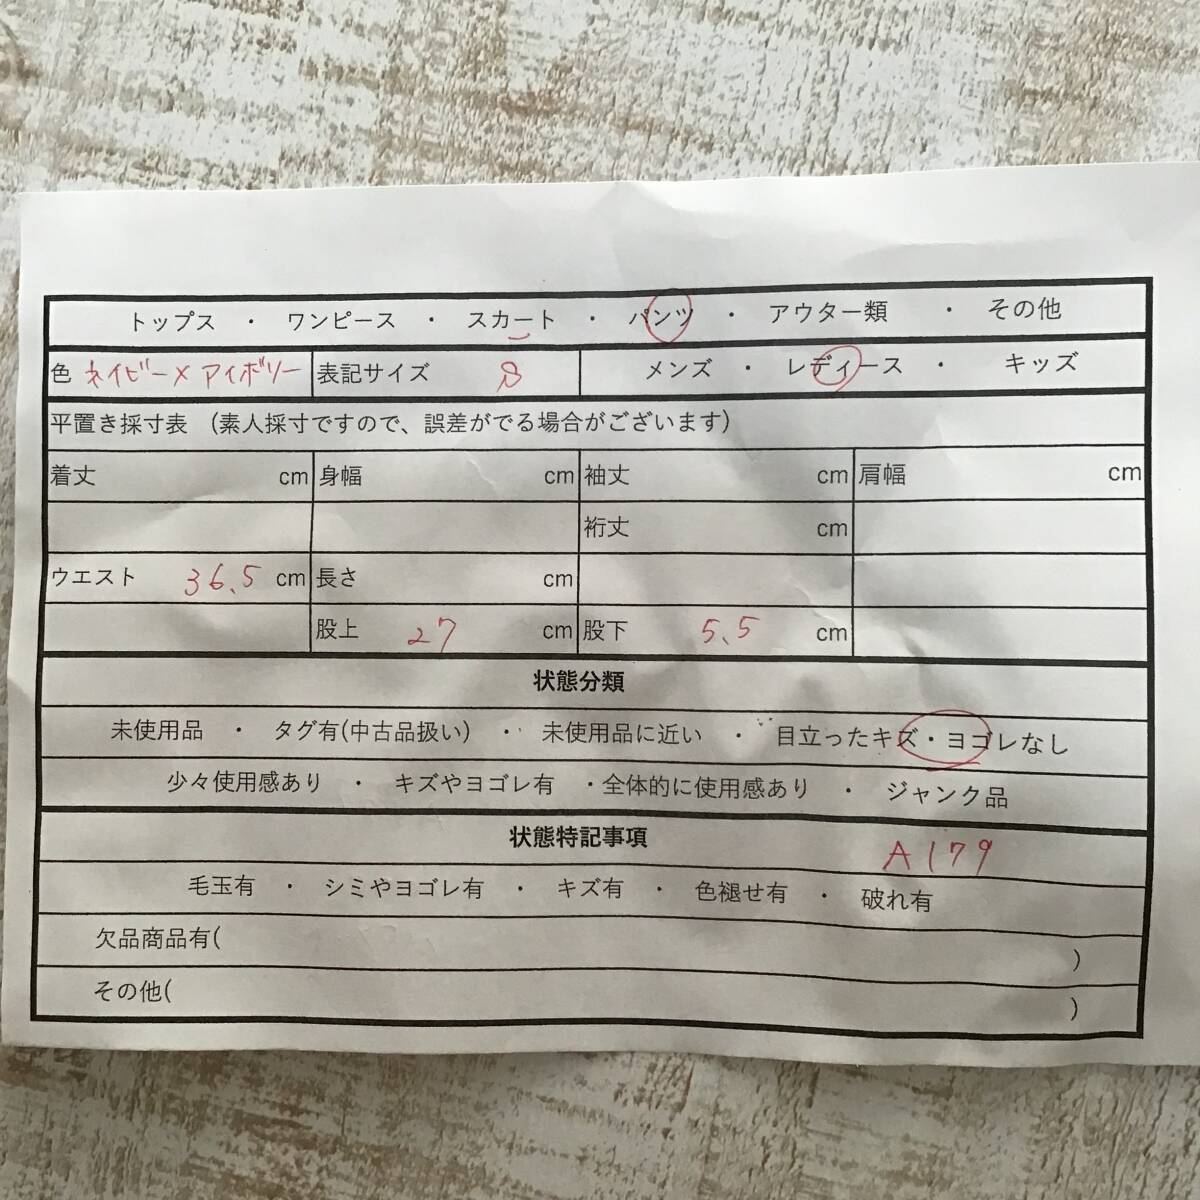 トップス ・ ワンピース ・ スカート ・ パンツ ・ アウター類 ・ その他
色 ネイビー×アイボリー 表記サイズ S メンズ ・ レディース ・ キッズ
平置き採寸表 (素人採寸ですので、誤差がでる場合がございます)
着丈 cm 身幅 cm 袖丈 cm 肩幅 cm
裄丈 cm
ウエスト 36.5 cm 長さ cm
股上 27 cm 股下 5.5 cm
状態分類
未使用品 ・ タグ有(中古品扱い) ・ 未使用品に近い ・ 目立ったキズ・ヨゴレなし
少々使用感あり ・ キズやヨゴレ有 ・全体的に使用感あり ・ ジャンク品
状態特記事項 A179
毛玉有 ・ シミやヨゴレ有 ・ キズ有 ・ 色褪せ有 ・ 破れ有
欠品商品有( )
その他( )